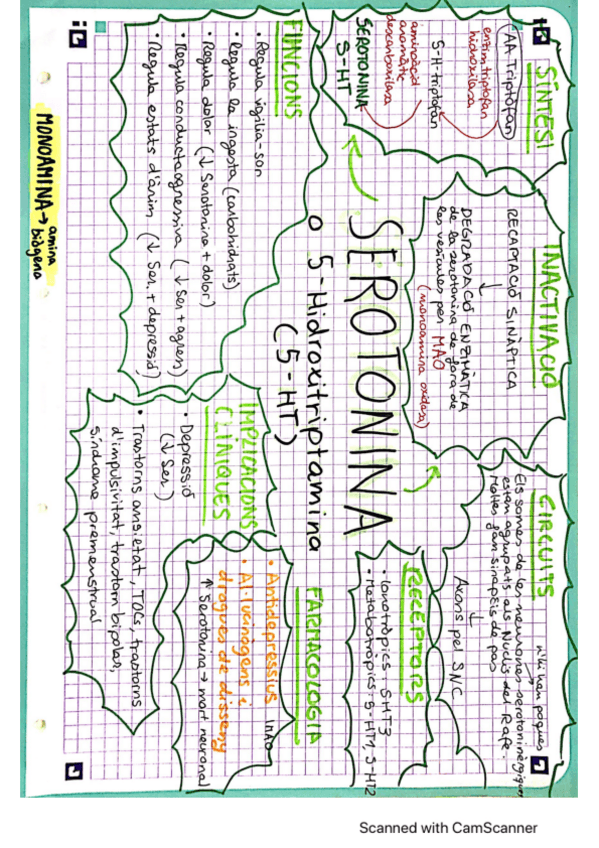 SÍNTESI
AA Triptòfan
enzim triptòfan
hidroxilasa
5-H-triptòfan
aminoàcid
aromàtic
descarboxilasa
SEROTONINA
5-HT
INACTIVACIÓ
RECAPTACIÓ SINÀPTICA
↓
DEGRADACIÓ ENZIMÀTICA
de la serotonina de fora de
les vesícules per MAO
(monoamina oxidasa)
CIRCUITS
n'hi han poques
Els somes de les neurones serotoninèrgiques
estan agrupats als Nuclis del Rafe.
Moltes fan sinapsis de pas
↓
Axons pel SNC
SEROTONINA
o 5-Hidroxitriptamina
(5-HT)
RECEPTORS
• Ionotròpics. 5HT3
• Metabotròpics. 5-HT1, 5-HT2
FUNCIONS
• Regula vigília-son
• Regula la ingesta (carbohidrats)
• Regula dolor (↓ Serotonina + dolor)
• Regula conducta agressiva (↓ ser + agres)
• Regula estats d'ànim (↓ Ser. + depressió)
IMPLICACIONS
CLÍNIQUES
• Depressió
(↓ Ser)
• Trastorns ansietat, TOCs, trastorns
d'impulsivitat, trastorn bipolar,
Síndrome premenstrual
FARMACOLOGIA
• Antidepressius IMAO
• Al·lucinògens i
drogues de disseny
↑ Serotonina → mort neuronal
MONOAMINA → amina
biògena
Scanned with CamScanner